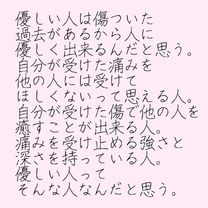 優しい人は傷ついた
過去があるから人に
優しく出来るんだと思う。
自分が受けた痛みを
他の人には受けて
ほしくないって思える人。
自分が受けた傷で他の人を
癒すことが出来る人。
痛みを受け止める強さと
深さを持っている人。
優しい人って
そんな人なんだと思う。